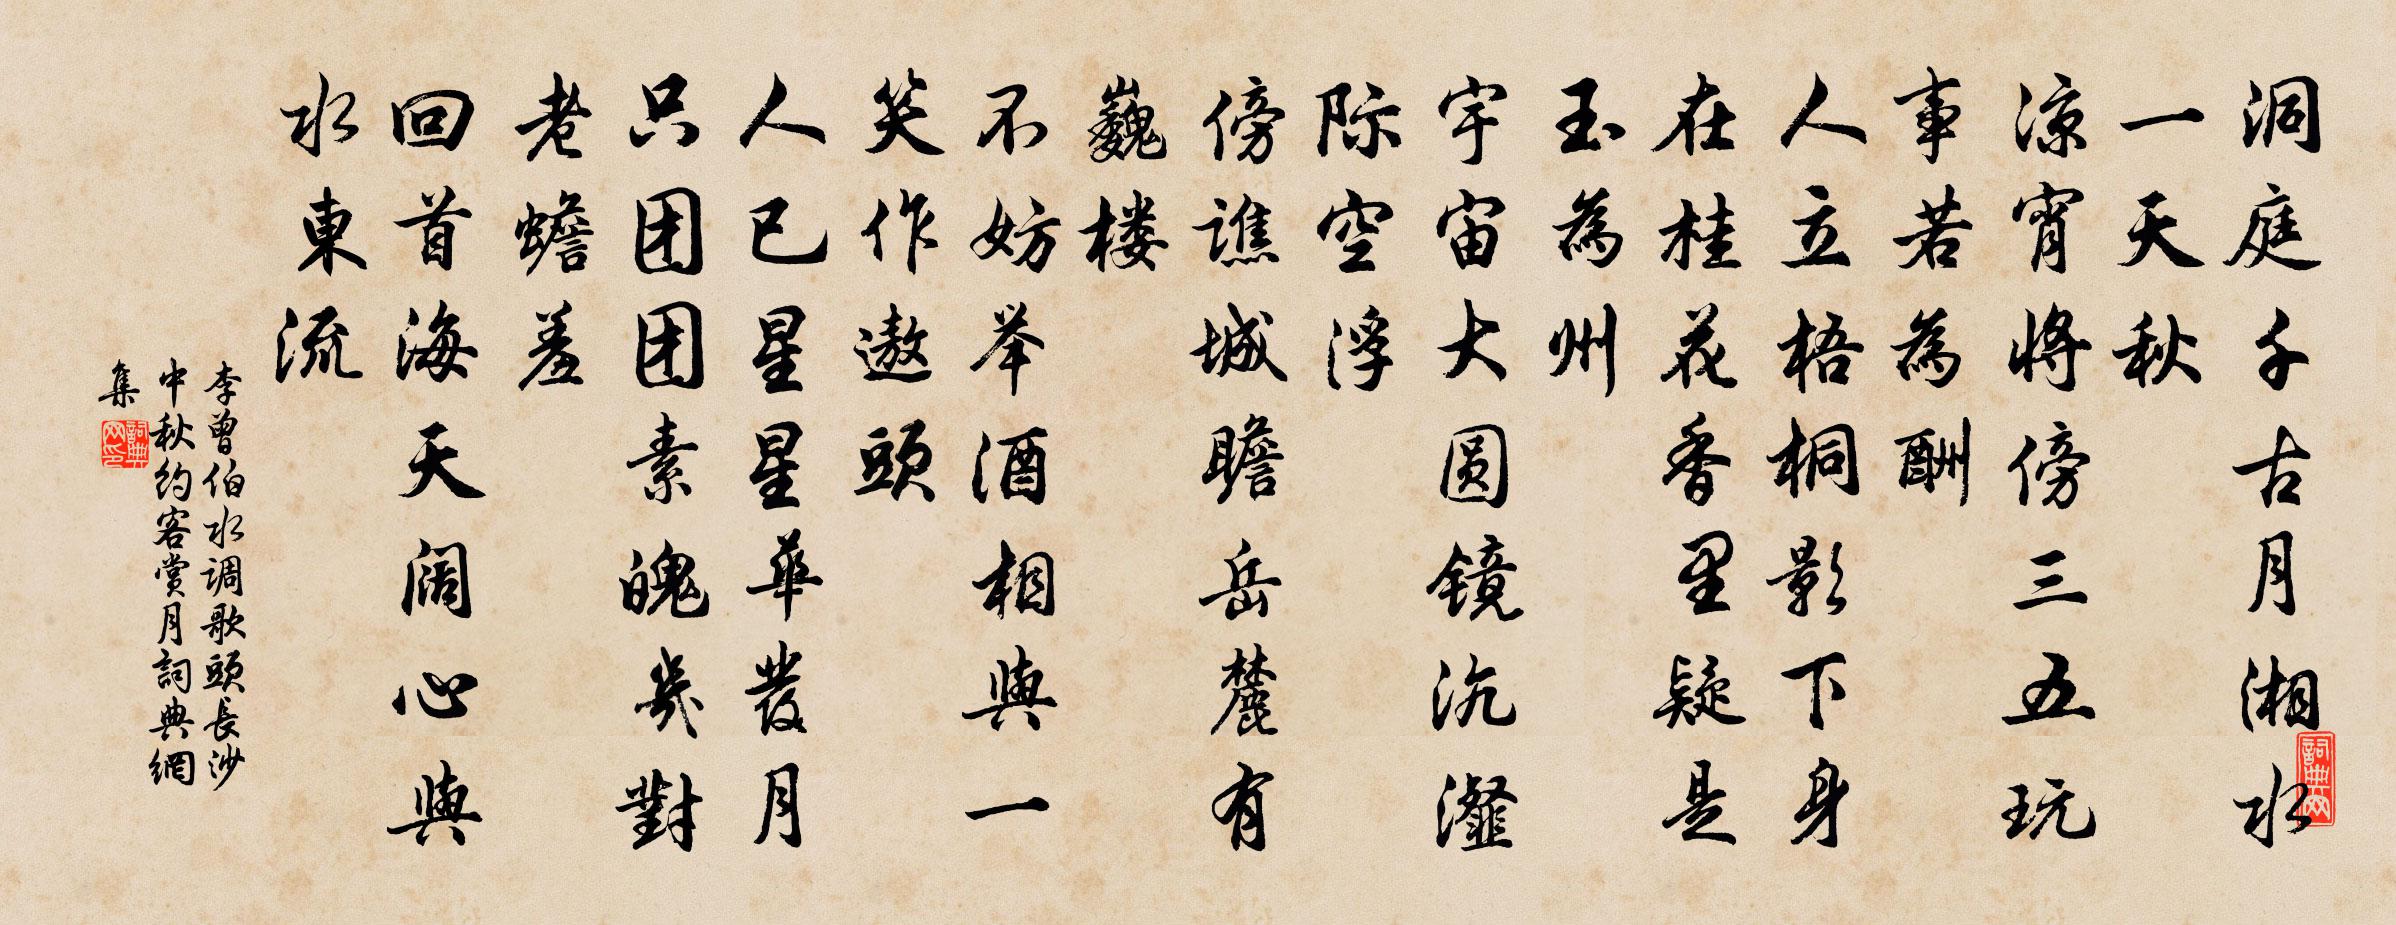 洞庭千古月湘水
一天秋
涼宵將傍三五玩
事若為酬
人立梧桐影下身
在桂花香里疑是
玉為州
宇宙大圆镜沆瀣
际空浮
傍谯城瞻岳麓有
巍楼
不妨举酒相與一
笑作遨頭
人已星星華發月
只团团素魄幾對
老蟾羞
回首海天阔心與
水東流
李曾伯水调歌頭長沙
中秋约客赏月詞典網
集
詞典网
詞典网印